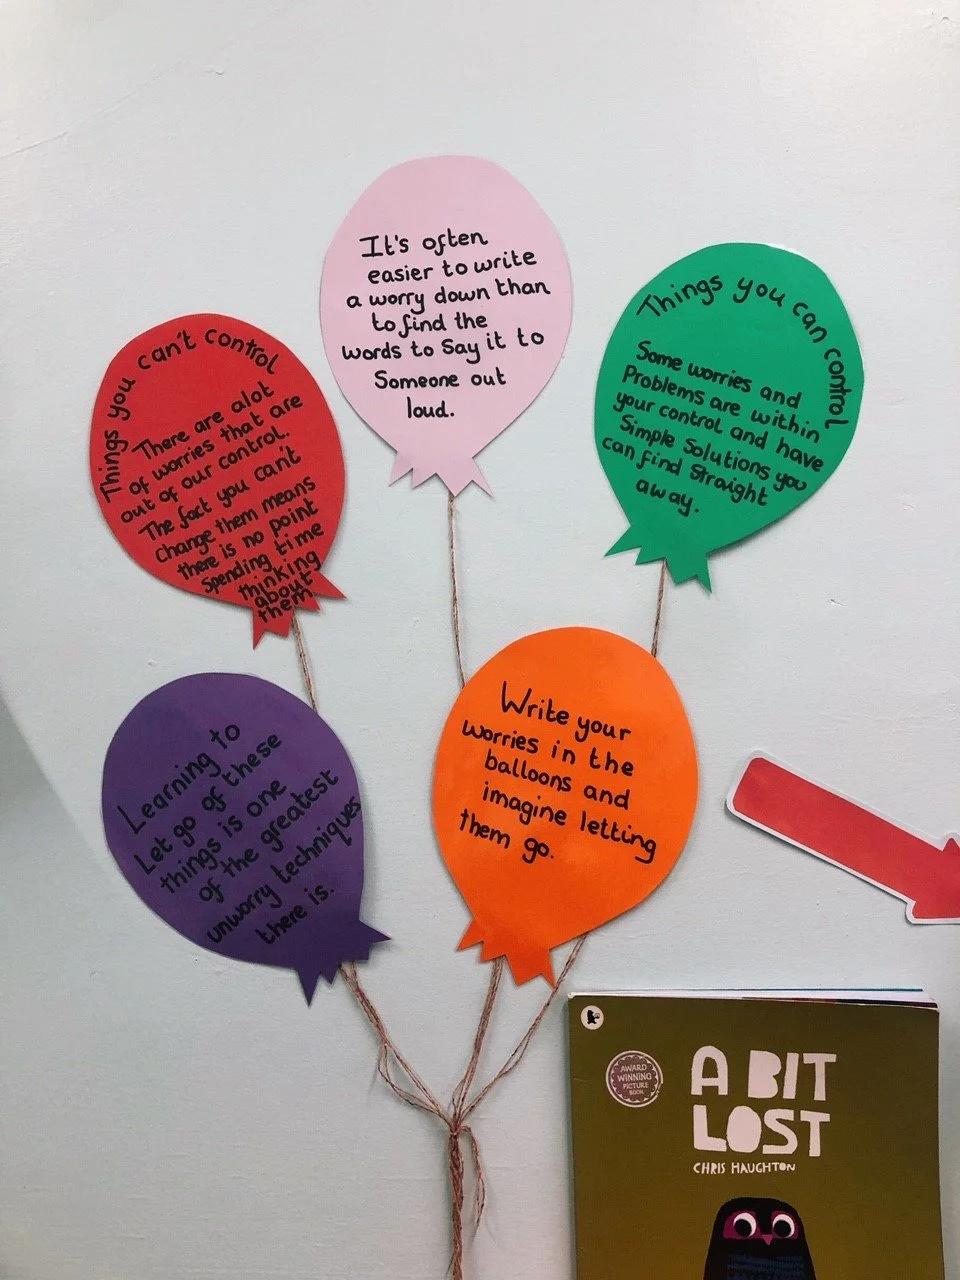 It's often
easier to write
a worry down than
to find the
words to Say it to
Someone out
loud.
Things you can control
Some worries and
Problems are within
your control and have
Simple Solutions you
can find Straight
away.
Things you can't control
There are alot
of worries that are
out of our control.
The fact you can't
change them means
there is no point
Spending time
thinking
about
them
Learning to
Let go of these
things is one
of the greatest
unworry techniques
there is.
Write your
worries in the
balloons and
imagine letting
them go.
AWARD
WINNING
PICTURE
BOOK
A BIT
LOST
CHRIS HAUGHTON